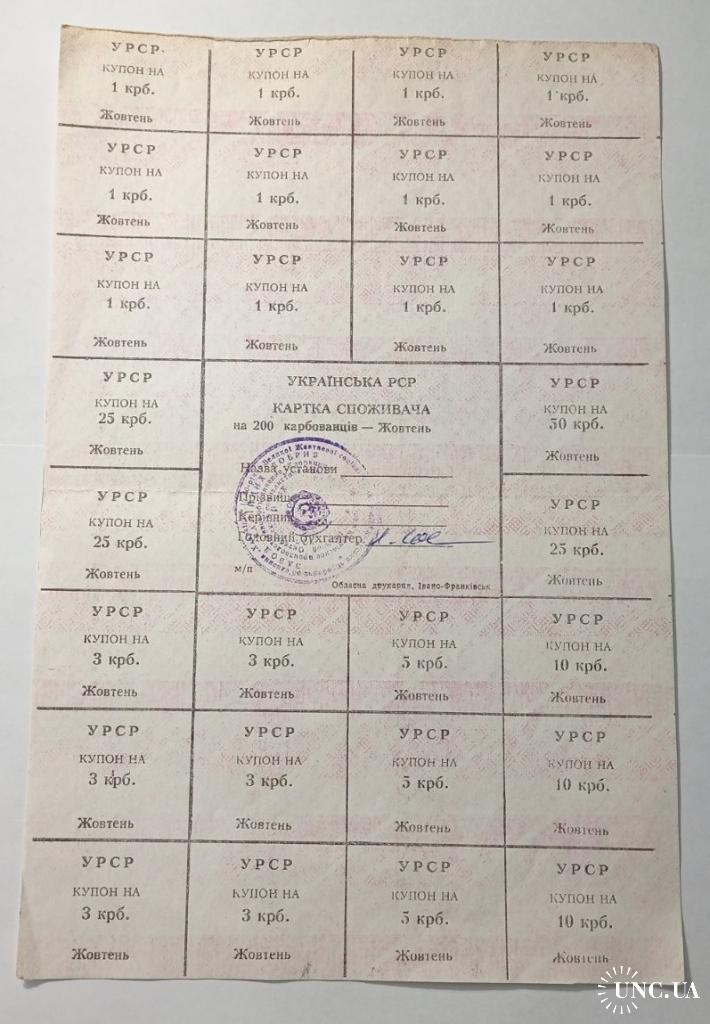 УРСР
КУПОН НА
1 крб.
Жовтень
УРСР
КУПОН НА
1 крб.
Жовтень
УРСР
КУПОН НА
1 крб.
Жовтень
УРСР
КУПОН НА
1 крб.
Жовтень
УРСР
КУПОН НА
1 крб.
Жовтень
УРСР
КУПОН НА
1 крб.
Жовтень
УРСР
КУПОН НА
1 крб.
Жовтень
УРСР
КУПОН НА
1 крб.
Жовтень
УРСР
КУПОН НА
1 крб.
Жовтень
УРСР
КУПОН НА
1 крб.
Жовтень
УРСР
КУПОН НА
1 крб.
Жовтень
УРСР
КУПОН НА
1 крб.
Жовтень
УРСР
КУПОН НА
25 крб.
Жовтень
УКРАЇНСЬКА РСР
КАРТКА СПОЖИВАЧА
на 200 карбованців — Жовтень
Великої Жовтневої
Назва установи
Прізвище
Керівник
Головний бухгалтер
м/п
Обласна друкарня, Івано-Франківськ
УРСР
КУПОН НА
50 крб.
Жовтень
УРСР
КУПОН НА
25 крб.
Жовтень
УРСР
КУПОН НА
25 крб.
Жовтень
УРСР
КУПОН НА
3 крб.
Жовтень
УРСР
КУПОН НА
3 крб.
Жовтень
УРСР
КУПОН НА
5 крб.
Жовтень
УРСР
КУПОН НА
10 крб.
Жовтень
УРСР
КУПОН НА
3 крб.
Жовтень
УРСР
КУПОН НА
3 крб.
Жовтень
УРСР
КУПОН НА
5 крб.
Жовтень
УРСР
КУПОН НА
10 крб.
Жовтень
УРСР
КУПОН НА
3 крб.
Жовтень
УРСР
КУПОН НА
3 крб.
Жовтень
УРСР
КУПОН НА
5 крб.
Жовтень
УРСР
КУПОН НА
10 крб.
Жовтень
UNC.UA